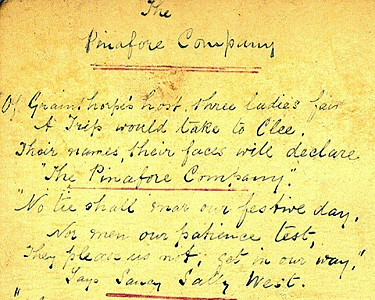 The
Pinafore Company
Of Grainthorpe's host, three ladies fair
A Trip would take to Clee.
Their names, their faces will declare
"The Pinafore Company".
"No tie shall mar our festive day,
Nor men our patience test,
They please us not, get in our way,"
Says Saucy Sally West.